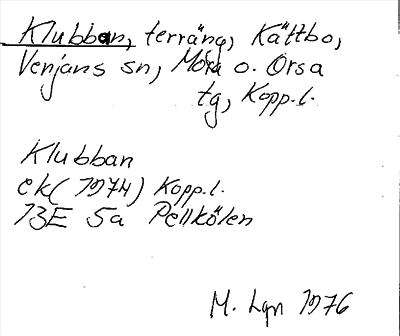 Klubban, terräng, Kättbo,
Venjans sn, Mora o. Orsa
tg, Kopp.l.
Klubban
ek (1974) Kopp.l.
13E 5a Pellkölen
M. Lgn 1976